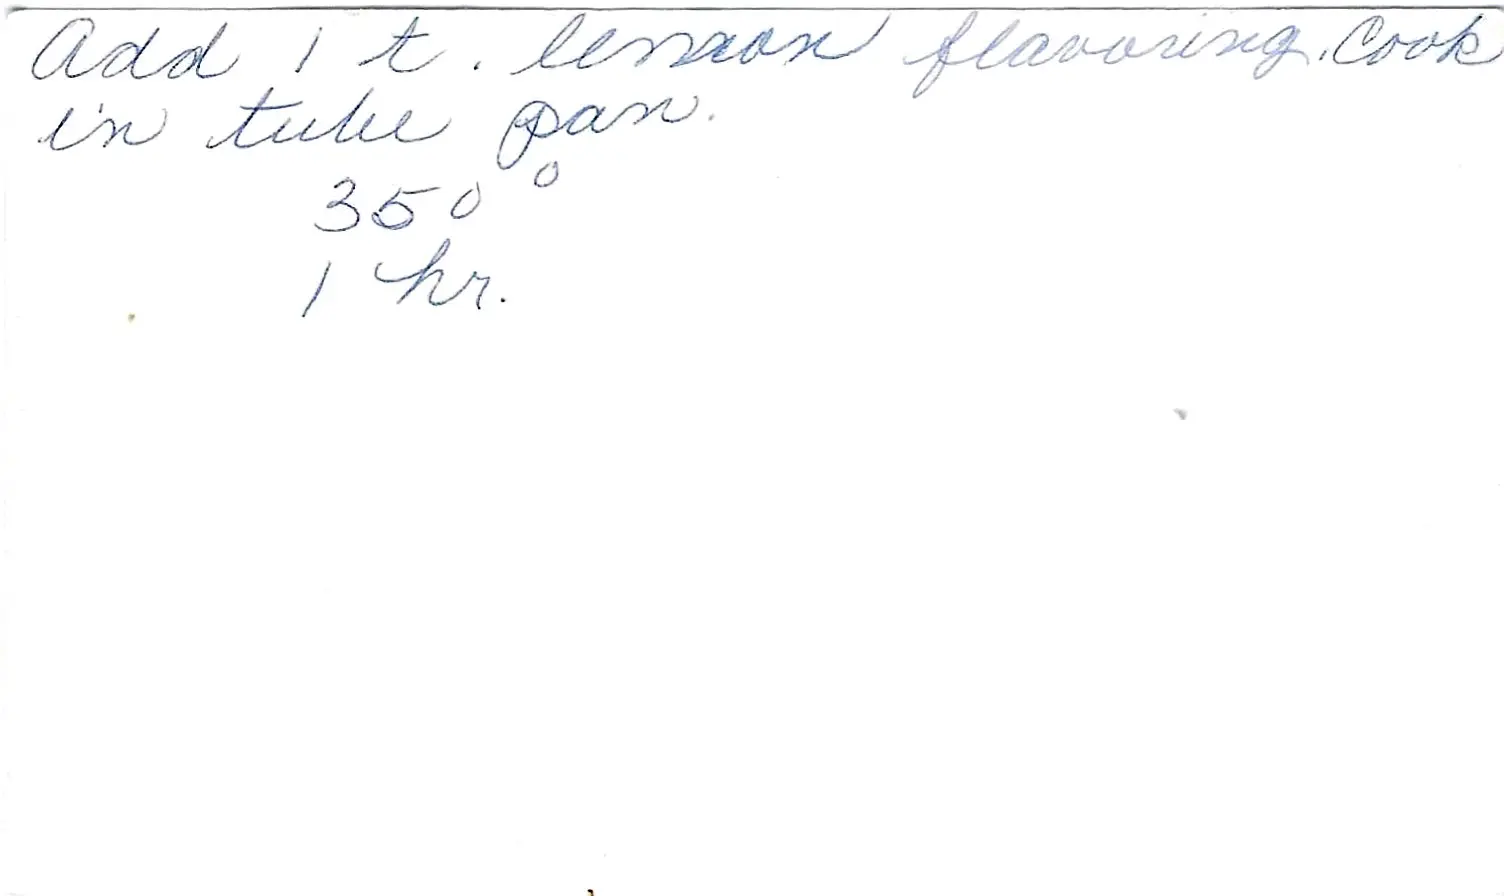 Add 1 t. lemon flavoring. Cook
in tube pan.
350°
1 hr.